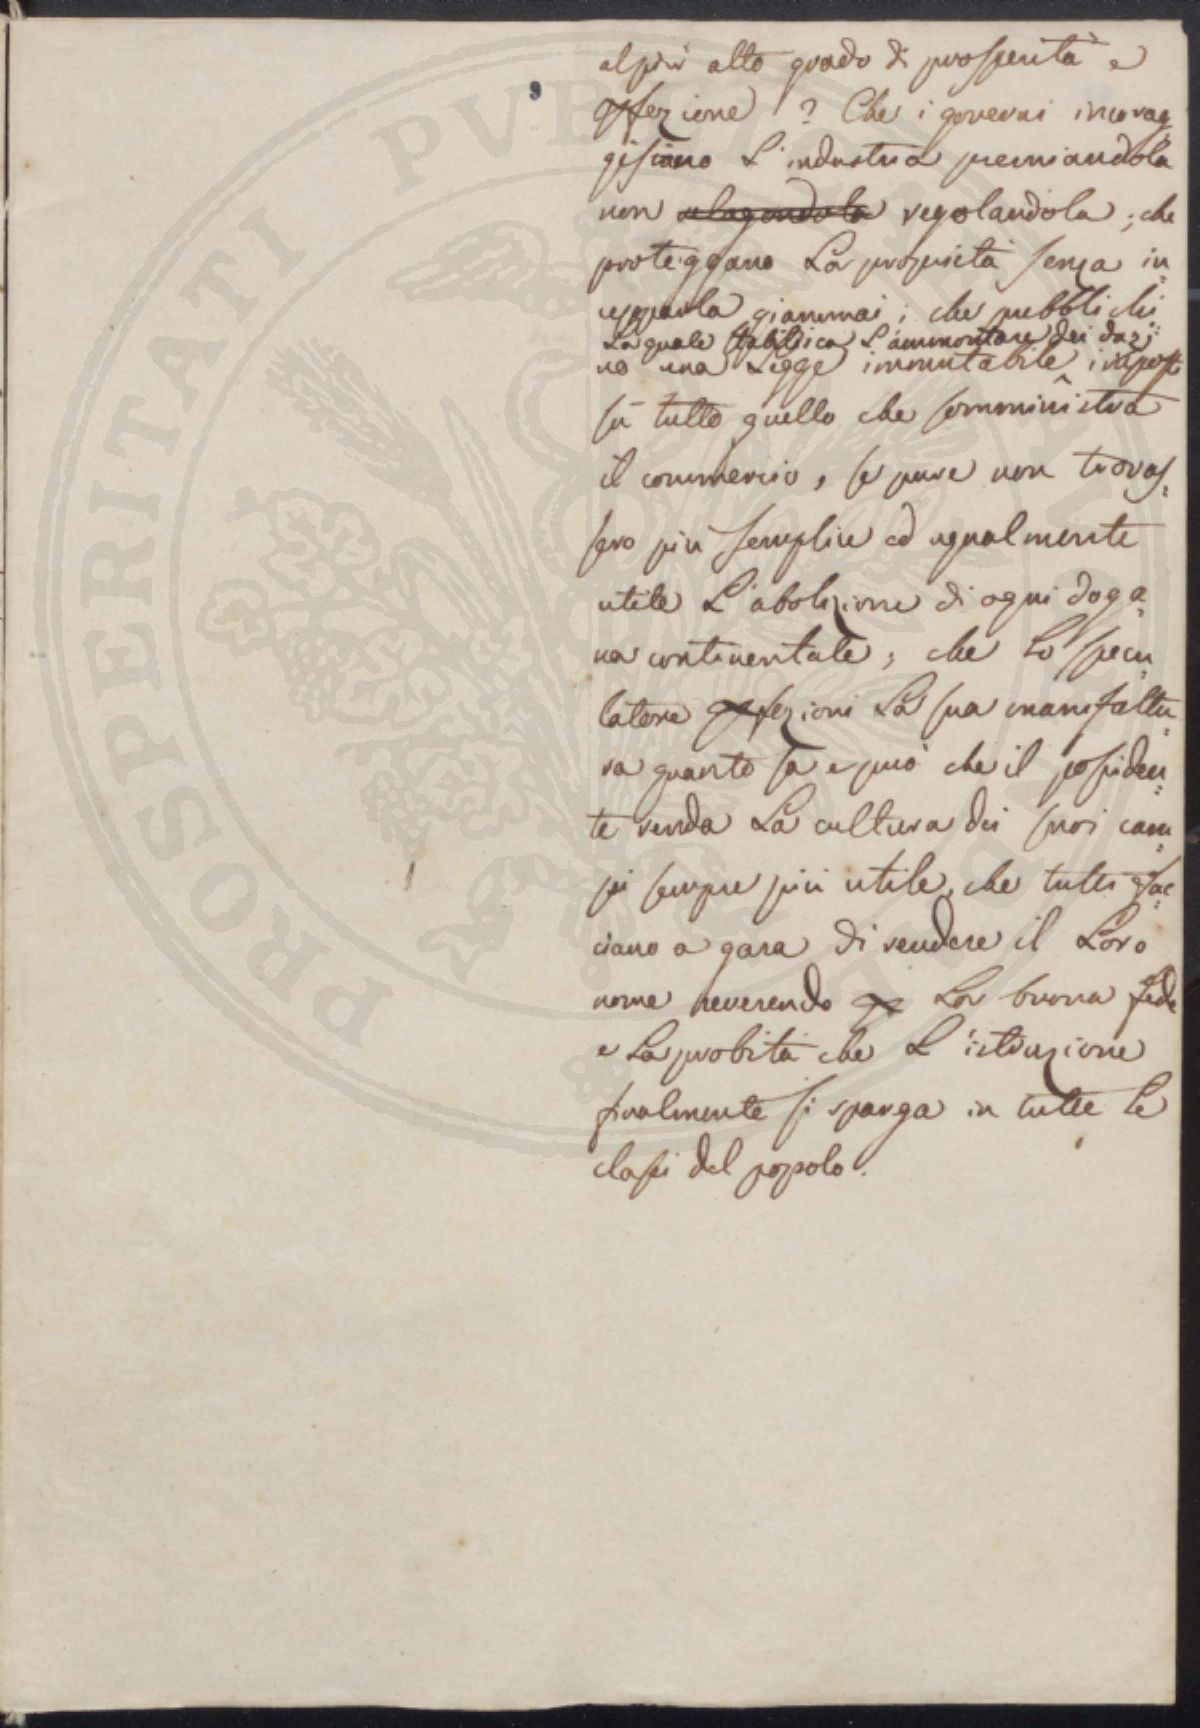 al più alto grado di prosperità e
perfezione? Che i governi incorag=
gischano L'industria premiandola
non regolandola; che
proteggano La proprietà senza in=
cepparla giammai; che pubblichi=
La quale stabilisca L'ammontare dei dazj
no una Legge immutabile imposti
su tutto quello che somministra
il commercio, se pure non trovas=
sero più semplice ed ugualmente
utile L'abolizione di ogni doga=
na continentale; che Lo specu=
latore perfezioni La sua manifattu=
ra quanto sa e può che il possiden=
te renda La cultura dei suoi cam=
pi sempre più utile, che tutti fac=
ciano a gara di rendere il Loro
nome reverendo per La buona fede
e La probità che L'istruzione
finalmente si sparga in tutte Le
classi del popolo.
PROSPERITATI PVBLICAE